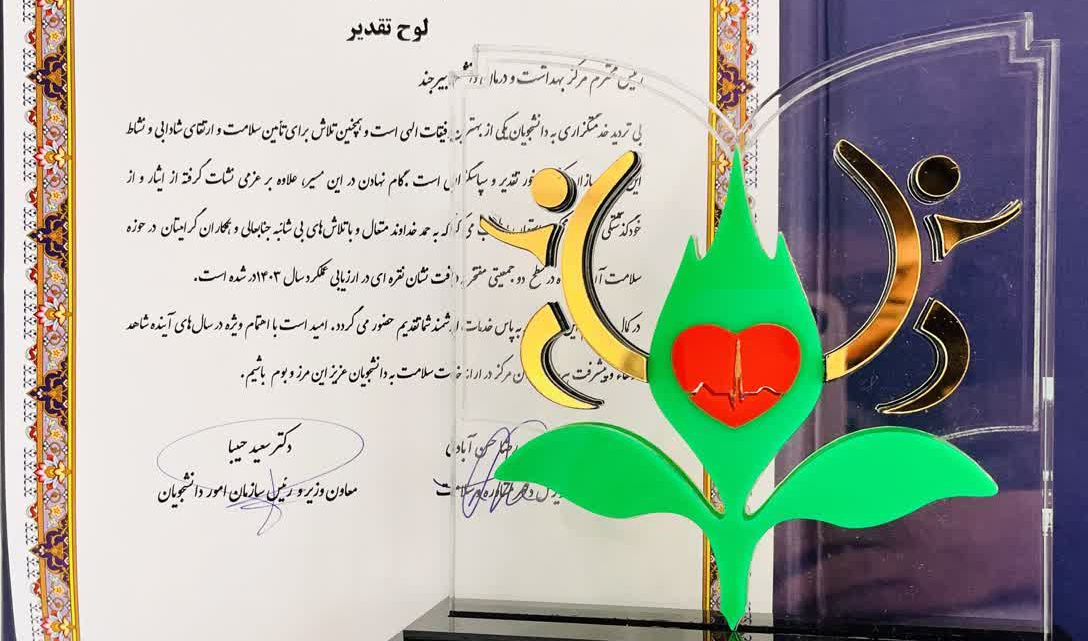 لوح تقدیر
رئیس محترم مرکز بهداشت و درمان بیرجند
بی تردید خدمتگزاری به دانشجویان یکی از بهترین توفیقات الهی است و همچنین تلاش برای تأمین سلامت و ارتقای شادابی و نشاط
این تقدیر و سپاسگزاری است .گام نهادن در این مسیر، علاوه بر عزمی نشات گرفته از ایثار و از
خودگذشتگی که به حمد خداوند متعال و با تلاش‌های بی شائبه جنابعالی و همکاران گرامیتان در حوزه
سلامت در سطح دو جمعیتی مفتخر دریافت نشان نقره ای در ارزیابی عملکرد سال ۱۴۰۳ شده است.
در به پاس خدمات ارزشمند شما تقدیم حضور می گردد. امید است با اهتمام ویژه در سال‌های آینده شاهد
و پیشرفت مرکز در ارائه خدمات سلامت به دانشجویان عزیز این مرز و بوم باشیم.
دکتر سعید حبیبا
معاون وزیر و رئیس سازمان امور دانشجویان
حسن آبادی
دفتر مشاوره و سلامت